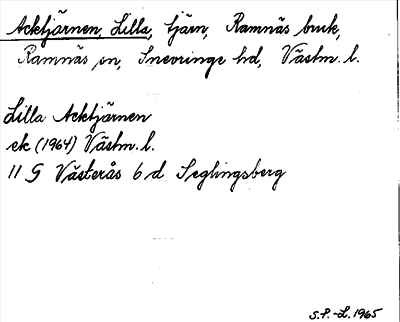 Acktjärnen, Lilla, tjärn, Ramnäs bruk,
Ramnäs sn, Snevringe hd, Västm. l.
Lilla Acktjärnen
ek (1964) Västm. l.
11 G Västerås 6 d Seglingsberg
S.P.-L. 1965